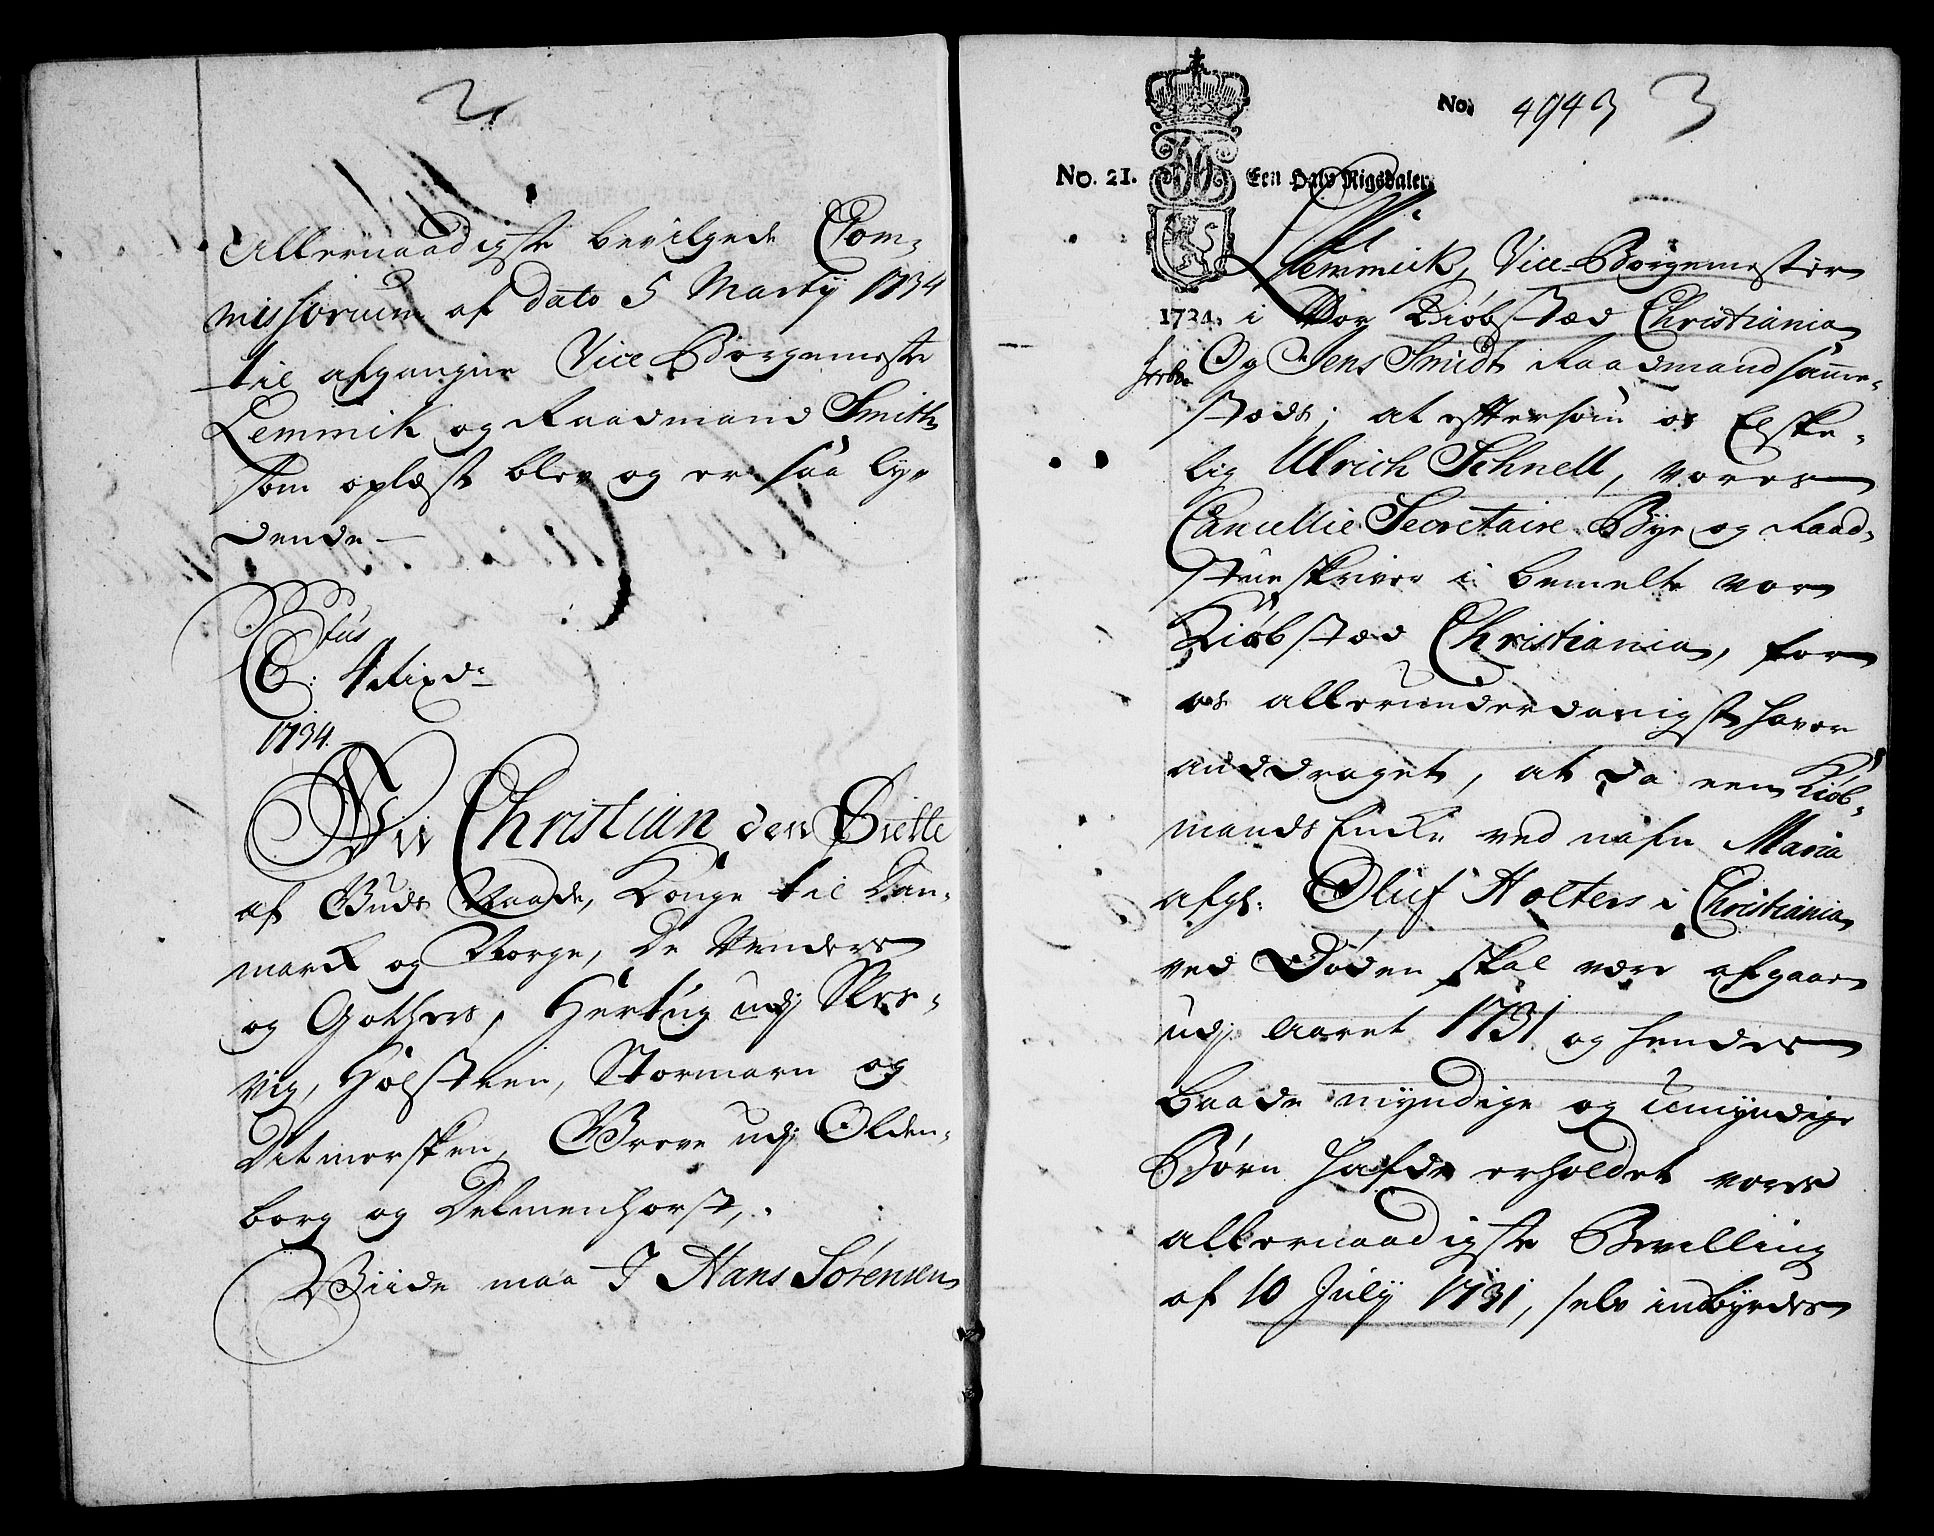 2
Allernaadigste bevilgede Com-
missorium af dato 5 Martÿ 1734
til afgangne Vice Borgemestr
Lemmik og Raadmand Smith
som oplæst blev og er saa ly-
dende
C: 4 Rixdr
1734.
Wii Christian den Siette
af Guds Naade, Konge til Dan-
mark og Norge, De Venders
og Gothers, Hertug udj Sles-
vig, Holsteen, Stormarn og
Ditmersken, Greve udj Olden-
borg og Delmenhorst,
Giide maa I Hans Sørensen
No. 4943 3
No. 21. Een Halv Rigsdaler.
Lemmick, Vice-Borgemester
1734. i Vor Kiøbstæd Christiania
Og Jens Smidt Raadmand samme-
stæds, at eftersom os Elske-
lig Ulrich Schnell, vores
Cancellie Secretaire Bÿe og Raad-
stueskriver i bemelte vor
Kiøbstæd Christiania, for
os allerunderdanigst haver
anddraget, at da een Kiøb-
mands Enke ved nafn Maria
afgl. Oluf Holters i Christiania
ved Døden skal være afgaaen
udj Aaret 1731 og hendes
baade mÿndige og umÿndige
Børn hafde erholdet vores
allernaadigste Bevilling
af 10 Julÿ 1731, selv inbÿrdes